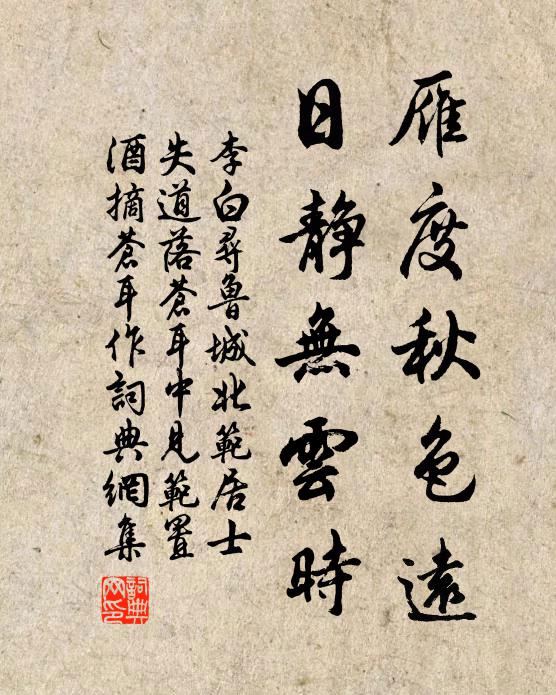 雁度秋色遠
日靜無雲時
李白尋魯城北範居士
失道落蒼耳中見範置
酒摘蒼耳作詞典網集
詞典網印